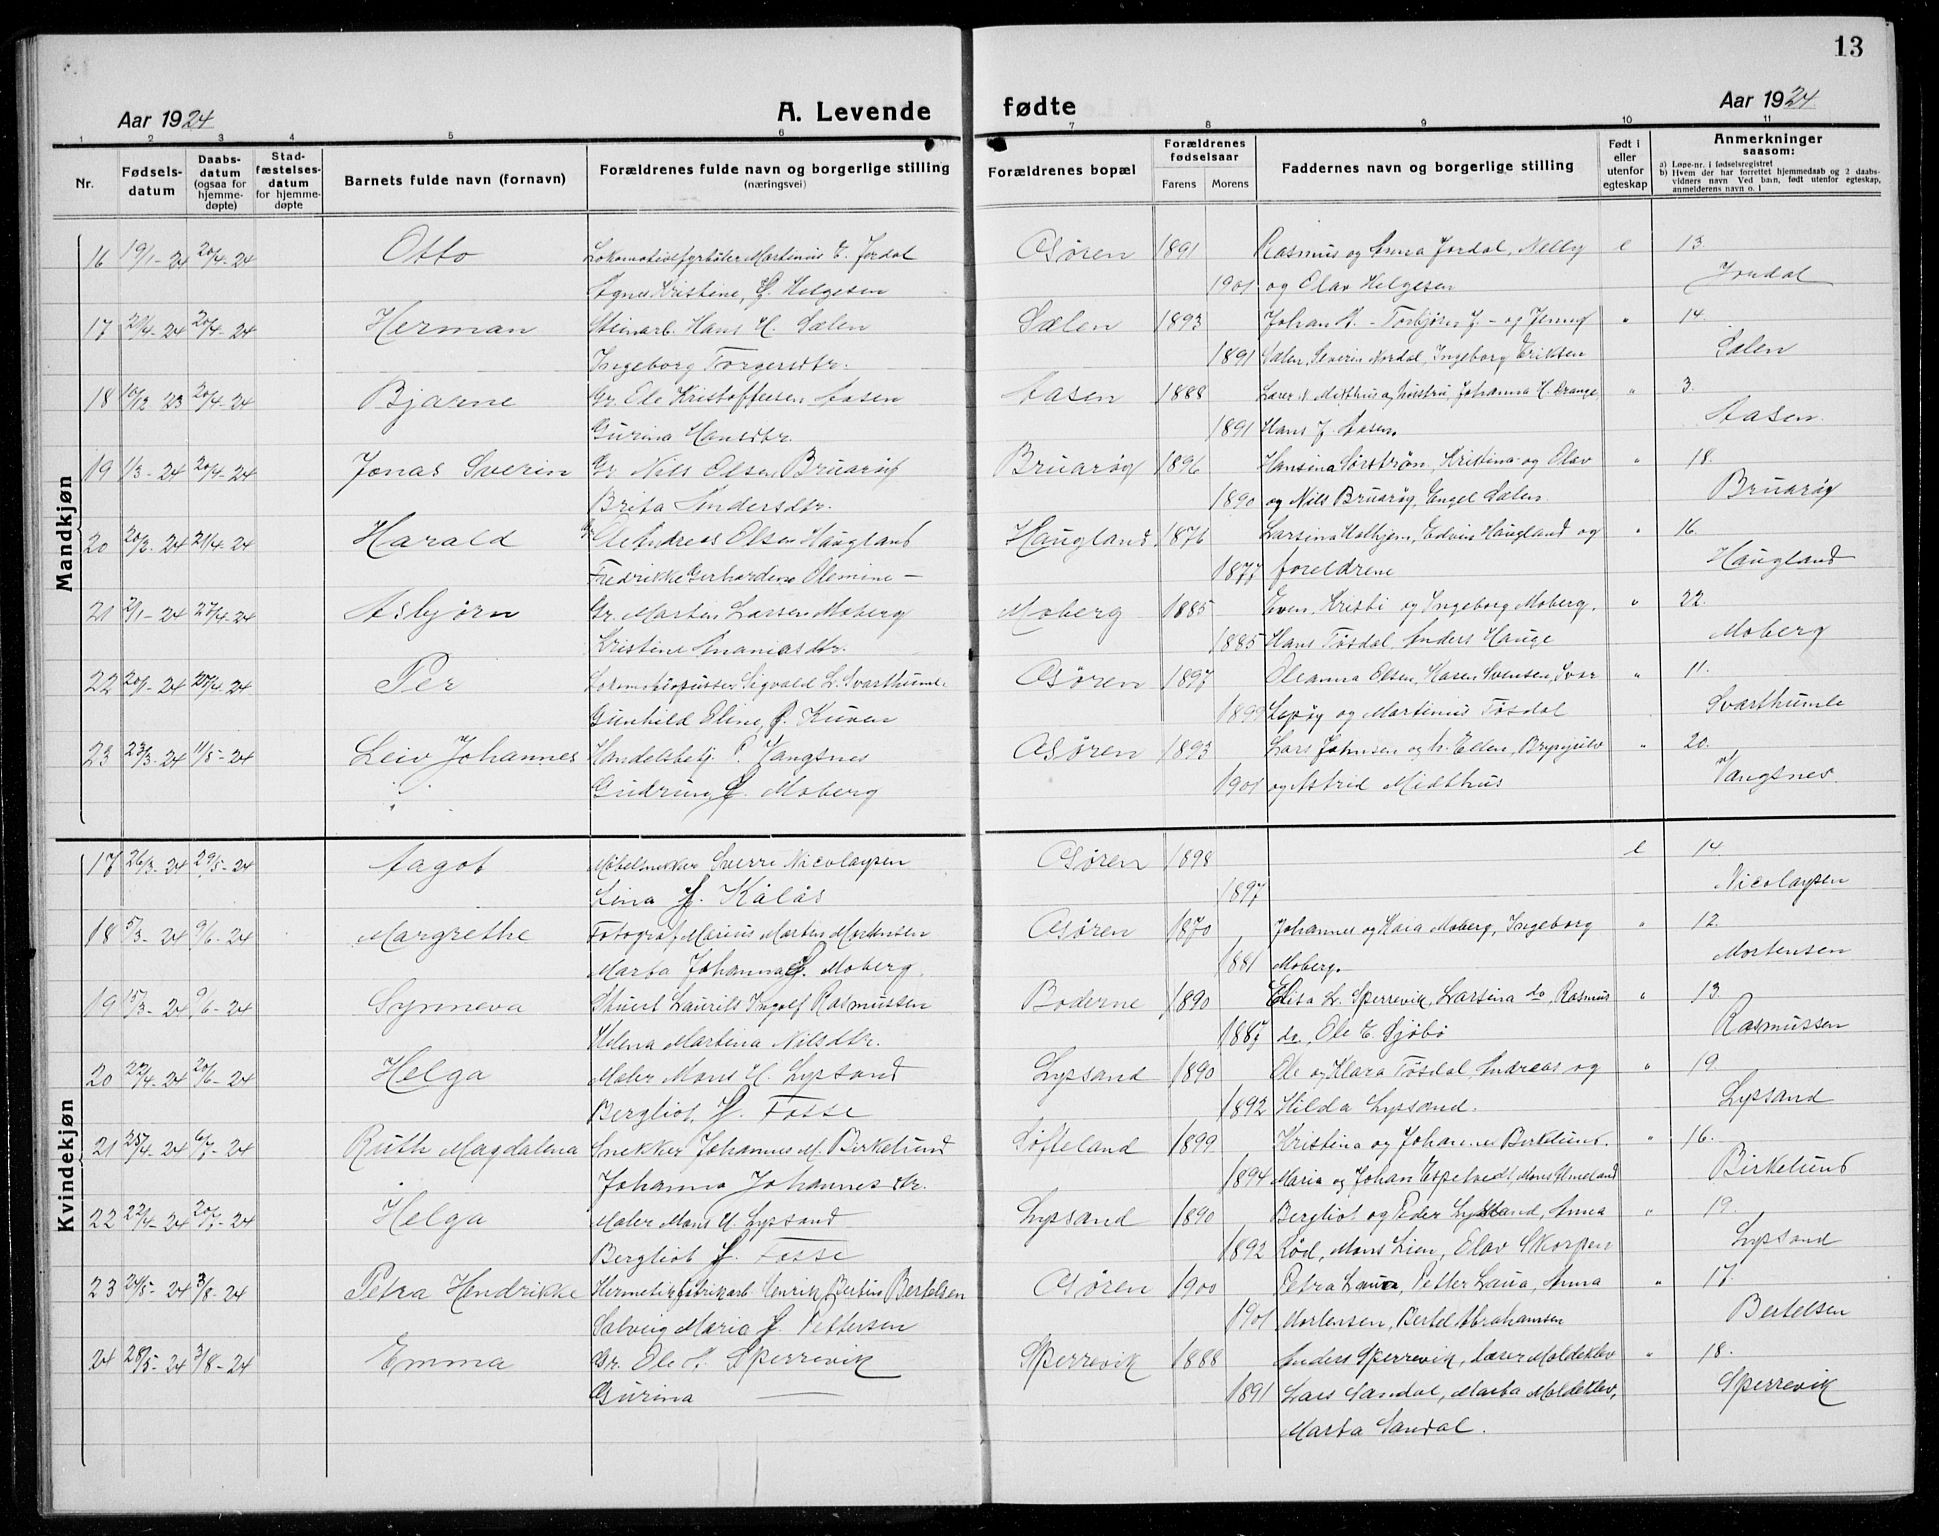 13
Aar 1924
A. Levende
fødte
Aar 1924
1 2 3 4 5 6 7 8 9 10 11
Nr.
Fødsels-
datum
Daabs-
datum
(ogsaa for
hjemme-
døpte)
Stad-
fæstelses-
datum
for hjemme-
døpte
Barnets fulde navn (fornavn)
Forældrenes fulde navn og borgerlige stilling
(næringsvei)
Forældrenes bopæl
Forældrenes
fødselsaar
Farens Morens
Faddernes navn og borgerlige stilling
Født i
eller
utenfor
egteskap
Anmerkninger
saasom:
a) Løpe-nr. i fødselsregistret
b) Hvem der har forrettet hjemmedaab og 2 daabs-
vidners navn Ved barn, født utenfor egteskap,
anmelderens navn o. l
Mandkjøn
16 19/1-24 20/4-24 Otto Lokomotivfyrbøter Martinius E. Jordal Osøren 1891 Rasmus og Anna Jordal, Nelly e 13.
Agnes Kristine, f. Helgesen 1901 og Olav Helgesen Jordal
17 2/4-24 20/4-24 Herman Steinarb. Hans H. Sælen Sælen 1893 Johan H. - Torbjørn J. - og Jenny " 14.
Ingeborg Torgersdtr. 1891 Sælen, Severin Nordal, Ingeborg Eriksen Sælen
18 10/12 23 20/4-24 Bjarne Gr. Ole Kristoffersen Aasen Aasen 1888 Lærer Midthus og hustru, Johanna H. Drange, " 3.
Gurina Hansdtr. 1891 Hans J. Aasen. Aasen.
19 1/3-24 20/4-24 Jonas Sverin Gr. Nils Olsen Bruarøy Bruarøy 1896 Hansina Sørstrøn, Kristina og Olav " 18.
Brita Andersdtr. 1890 og Nils Bruarøy, Engel Sælen Bruarøy
20 20/2-24 21/4-24 Harald Gr. Ole Andreas Olsen Haugland Haugland 1876 Larsina Holhjem, Edvin Haugland og " 16.
Fredrikke Gerhardene Olemine - 1877 foreldrene Haugland
21 2/1-24 27/4-24 Asbjørn Gr. Martin Larsen Moberg Moberg 1885 Even, Kristi og Ingeborg Moberg, " 22.
Kristine Ananiasdtr. 1885 Hans Tøsdal, Anders Hauge Moberg
22 20/1-24 27/4-24 Per Lokomotivpusser Sigvald L. Svarthumle Osøren 1897 Oleanna Olsen, Karen Svensen, Ivar " 11.
Gunhild Eline, f. Kuven 1899 Lepøy og Martinius Tøsdal Svarthumle
23 23/3-24 11/5-24 Leiv Johannes Handelsbetj. P. Vangsnes Osøren 1893 Lars Johnsen og h. Ellen, Brynjulv " 20.
Gudrun, f. Moberg 1901 og Astrid Midthus Vangsnes
Kvindekjøn
17 26/3-24 29/5-24 Aagot Møbelsnekker Sverre Nicolaysen Osøren 1898 e 14.
Lina f. Kålås 1897 Nicolaysen
18 5/3-24 9/6-24 Margrethe Fotograf Marius Martin Mortensen Osøren 1870 Johannes og Kaia Moberg, Ingeborg " 12.
Marta Johanna f. Moberg. 1881 Moberg. Mortensen
19 15/3-24 9/6-24 Synneva Stuert Laurits Ingolf Rasmussen Boderne 1890 Elisa L. Sperrevik, Larsina do, Rasmus " 13.
Helena Martina Nilsdtr. 1887 do, Ole E. Sjøbø Rasmussen
20 22/4-24 20/6-24 Helga Maler Mons H. Lypsand Lypsand 1890 Ole og Klara Tøsdal, Andreas og " 19
Bergliot f. Fosse 1892 Hilda Lypsand. Lypsand
21 25/4-24 6/7-24 Ruth Magdalena Snekker Johannes M. Birkelund Søfteland 1899 Kristina og Johannes Birkelund. " 16.
Johanna Johannesdtr. 1894 Maria og Johan Espetvedt, Mons Hmeland Birkelund
22 22/4-24 20/7-24 Helga Maler Mons H. Lypsand Lypsand 1890 Bergliot og Peder Lypsand, Anna " 19.
Bergliot f. Fosse 1892 Rød, Mons Lien, Olav Skorpen Lypsand
23 24/5-24 3/8-24 Petra Hendrikke Hermetikfabrikarb. Henrik Bertius Bertelsen Osøren 1900 Petra Laua, Petter Laua, Anna " 17.
Salveig Maria f. Pettersen 1901 Mortensen, Bertel Abrahamsen Bertelsen
24 28/5-24 3/8-24 Emma Gr. Ole A. Sperrevik Sperrevik 1888 Anders Sperrevik, Lærer Moldeklev " 18.
Gurina — 1891 Lars Sandal, Marta Moldeklev, Sperrevik
Marta Sandal.